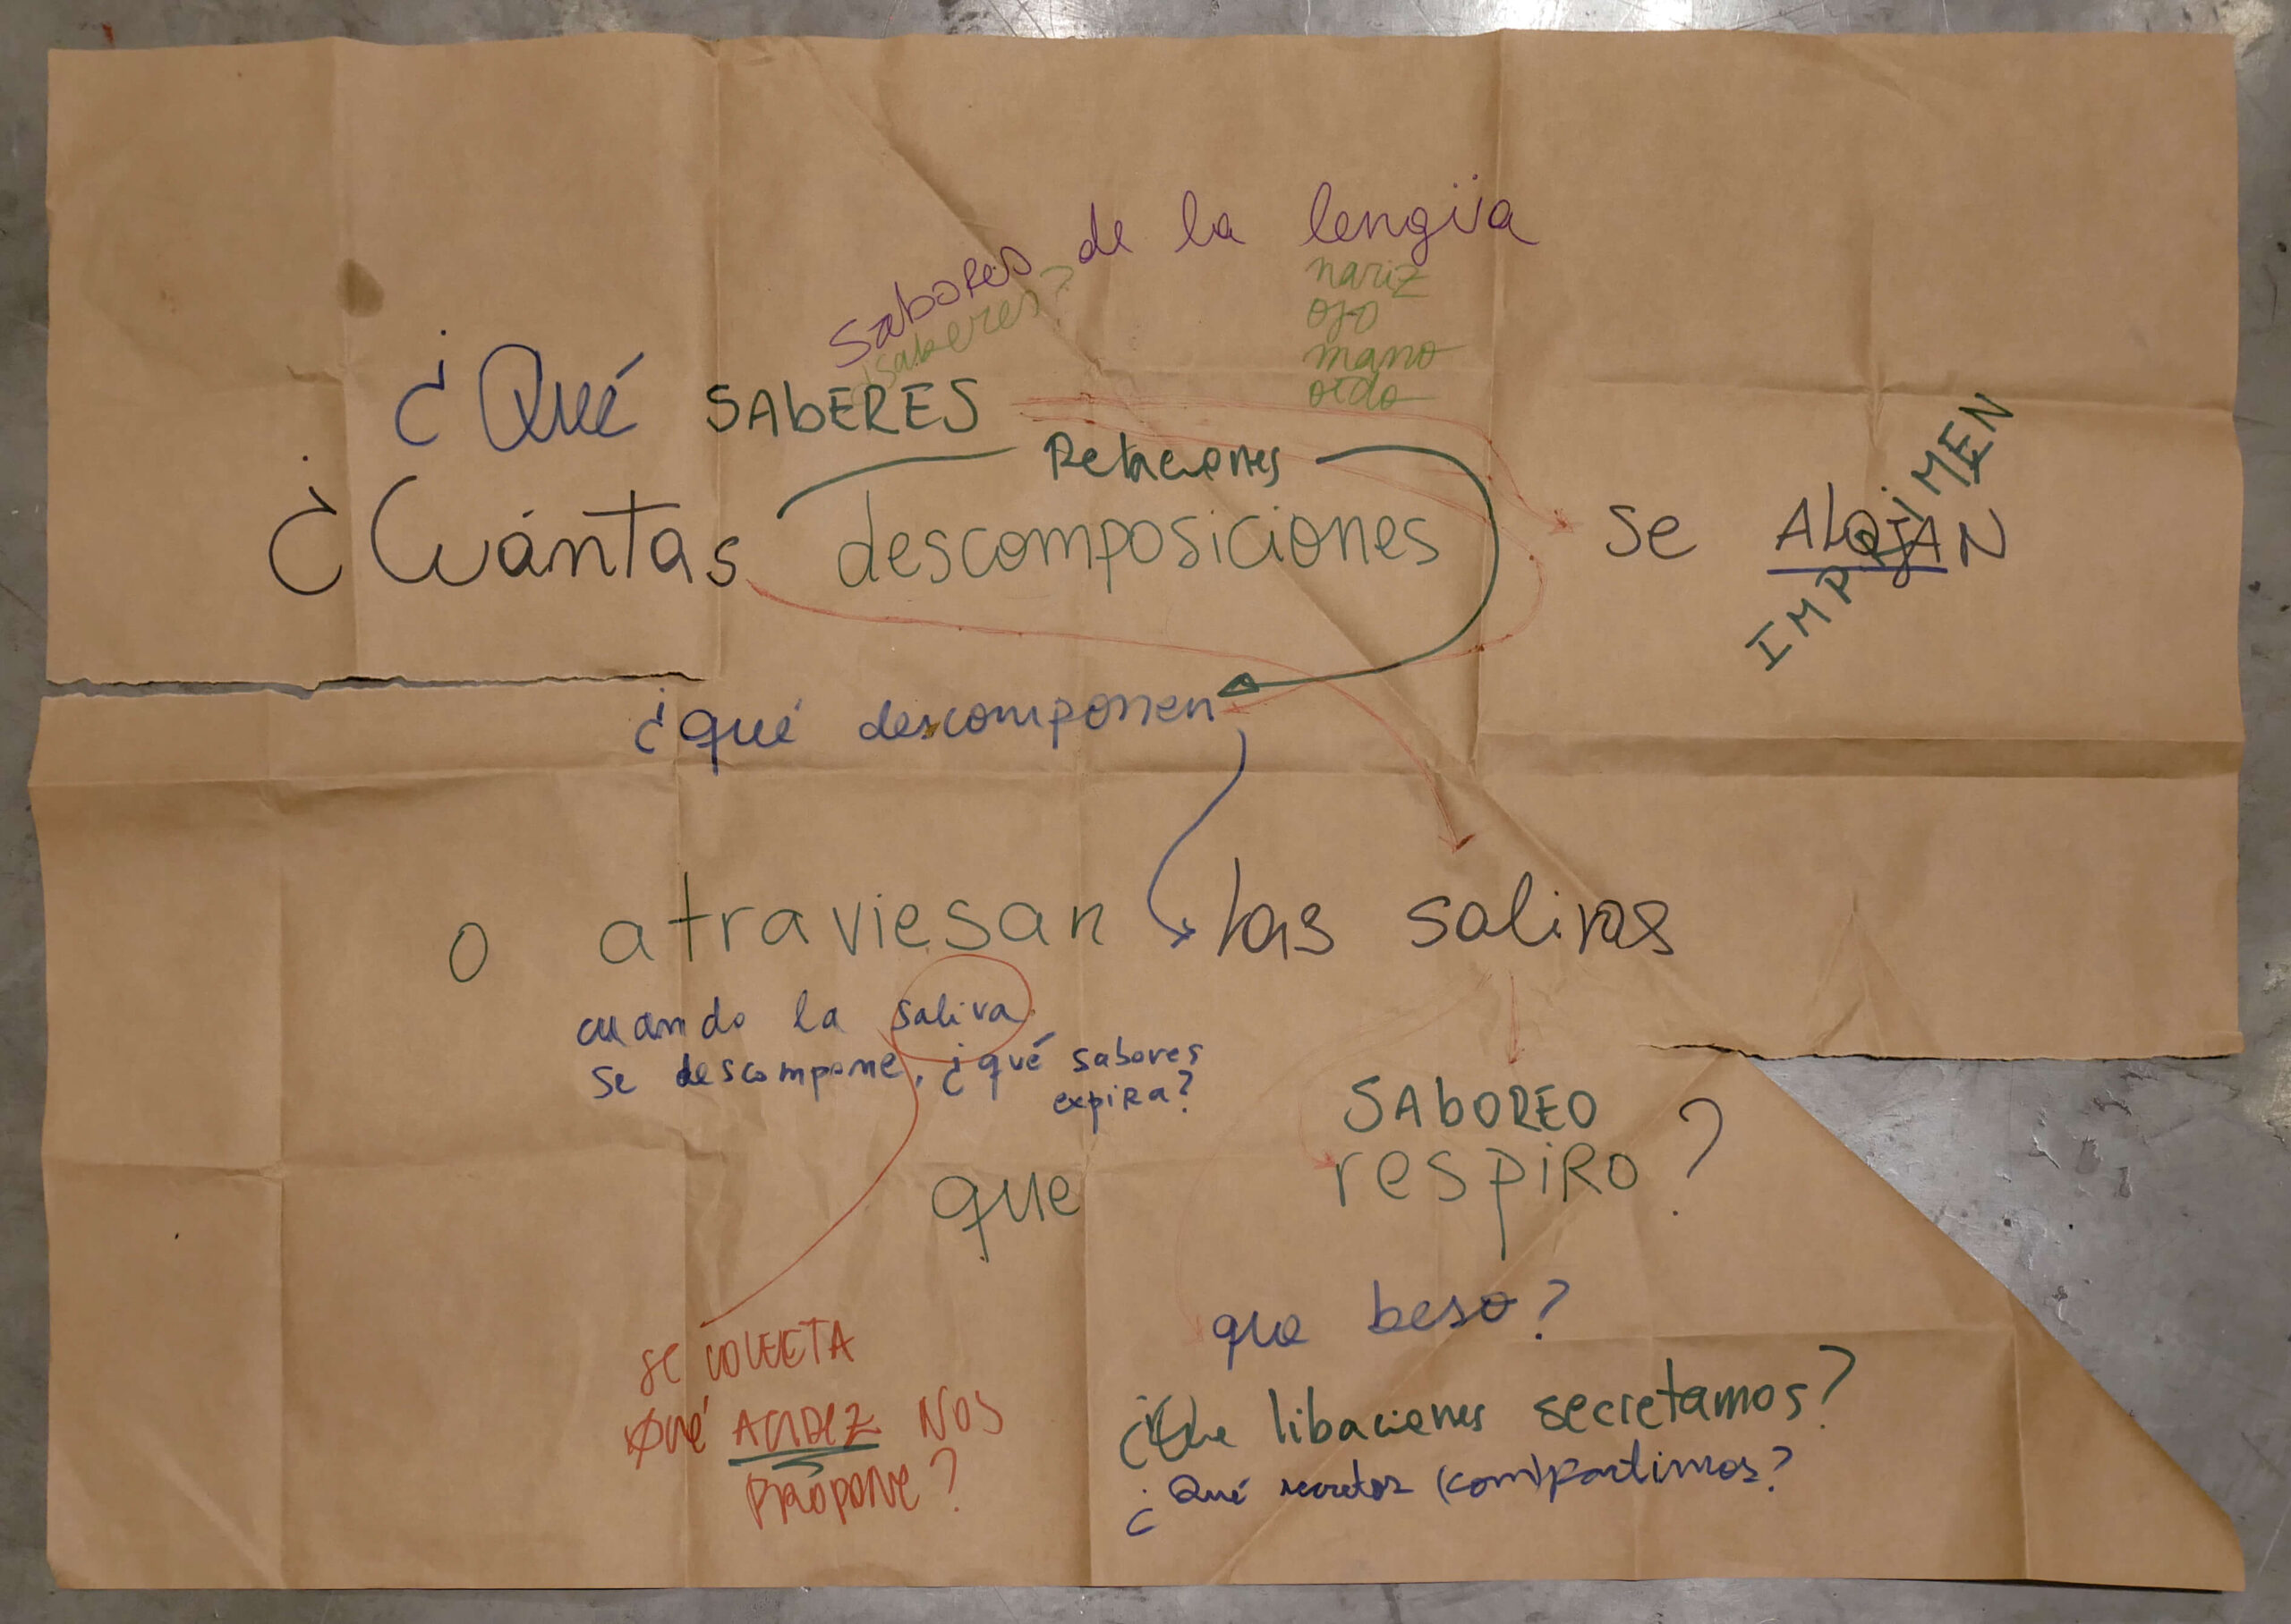 Sabores de la lengüa
¿saberes?
nariz
ojo
mano
oído
¿Qué SAbERES
Relaciones
¿Cuántas descomposiciones se ALOJAN
IMPRIMEN
¿qué descomponen
o atraviesan las salivas
cuando la saliva
se descompone, ¿qué sabores
expira?
SAbOREO
que respiro?
que beso?
se colecta
Qué ACIDEZ NOS
PROPONE?
¿Qué libaciones secretamos?
¿Qué secretos (com)partimos?